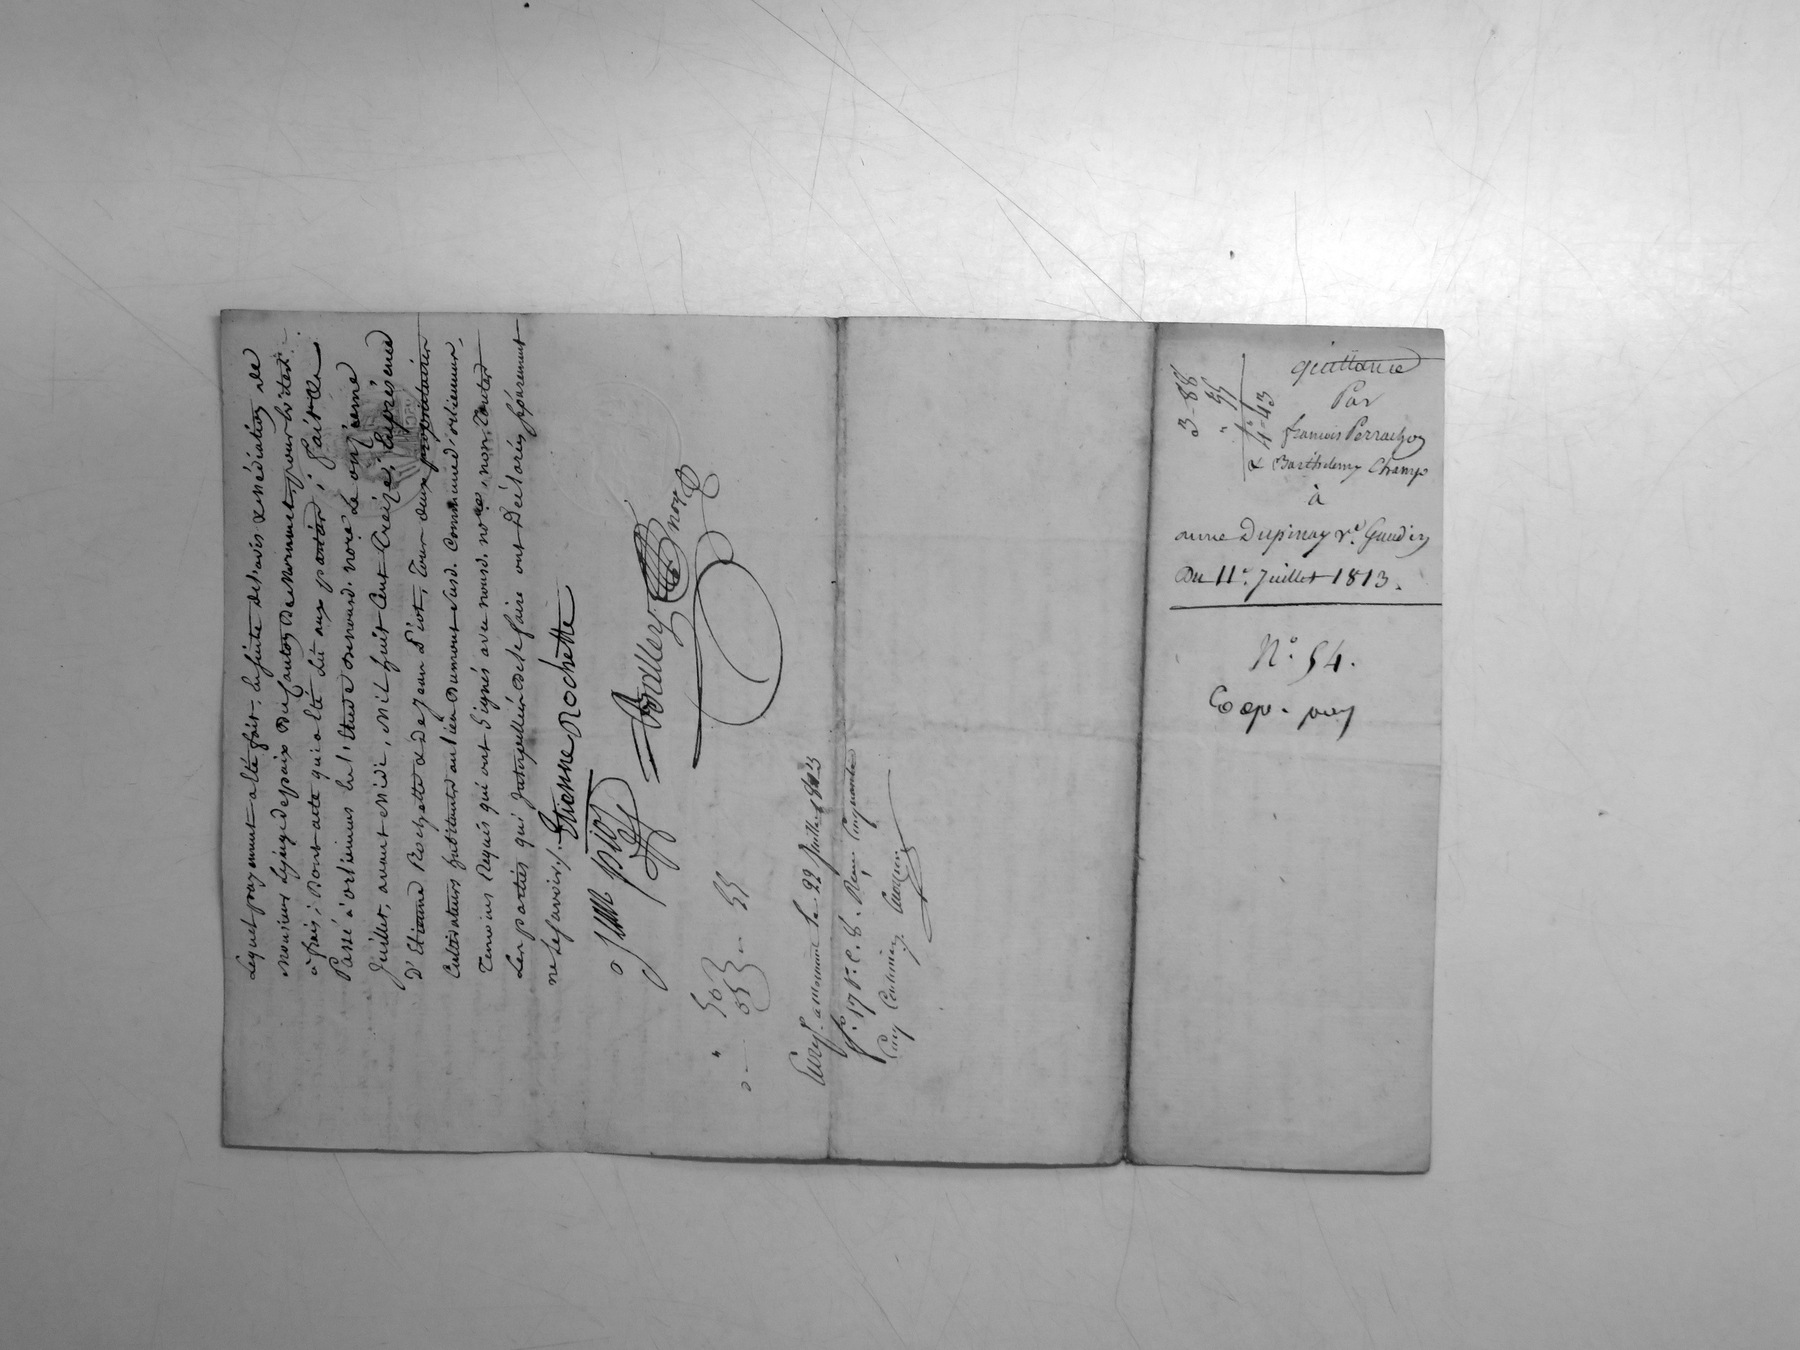 Lequel payement a été fait, ensuite des avis & médiation de
Monsieur le juge de paix du Canton de Mornant, pour éviter
à frais; Dont acte qui a été lû aux parties; fait et
Passé à orliénas en l'Etude de nousd. no.re Le onzieme
Juillet, avant Midi, Mil huit Cent Treize; En présence
D'Etienne Rochette & de Jean Piot, Tous deux propriétaires
Cultivateurs habitants au lieu Dumont susd. Commune d'orliennas,
Temoins Requis qui ont Signés avec nousd. no.re, non toutes
Les parties qui Interpellées de le faire ont Déclarés séparément
ne le savoir./.
Etienne Rochette
Jean piot
Bradley no.re
50
05
55
Enreg. à Mornant le 22 Juillet 1813
f.o 17 v.o C. 8. Reçu Cinquante
Cinq Centimes
3-88
" 55
4-43
quittance
Par
francois Perrachon
& Barthelemy Champ
à
anne Dupinay v.e Gaudin
Du 11.e Juillet 1813.
N.o 54.
Exp. pay